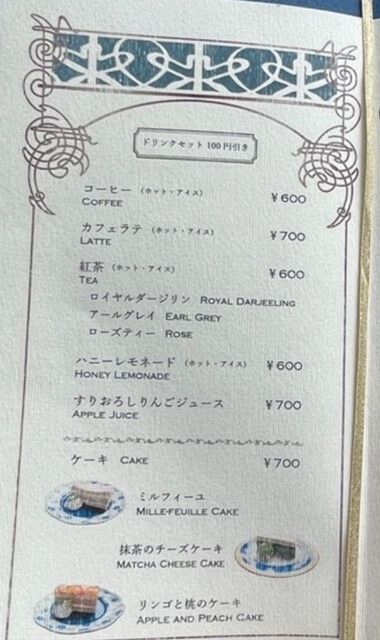 ドリンクセット 100円引き
コーヒー (ホット・アイス) ¥600
COFFEE
カフェラテ (ホット・アイス) ¥700
LATTE
紅茶 (ホット・アイス) ¥600
TEA
ロイヤルダージリン ROYAL DARJEELING
アールグレイ EARL GREY
ローズティー ROSE
ハニーレモネード (ホット・アイス) ¥600
HONEY LEMONADE
すりおろしりんごジュース ¥700
APPLE JUICE
ケーキ CAKE ¥700
ミルフィーユ
MILLE-FEUILLE CAKE
抹茶のチーズケーキ
MATCHA CHEESE CAKE
リンゴと桃のケーキ
APPLE AND PEACH CAKE